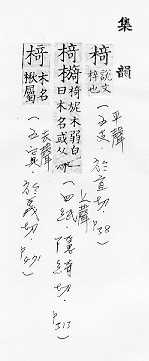 集韻
椅 說文梓也 平聲
(五支·於宜切·P38)
椅 椅柅木弱皃一曰木名或从 上聲
(四紙·隱綺切·P313)
椅 木名楸屬 去聲
(五寘·於義切·P471)